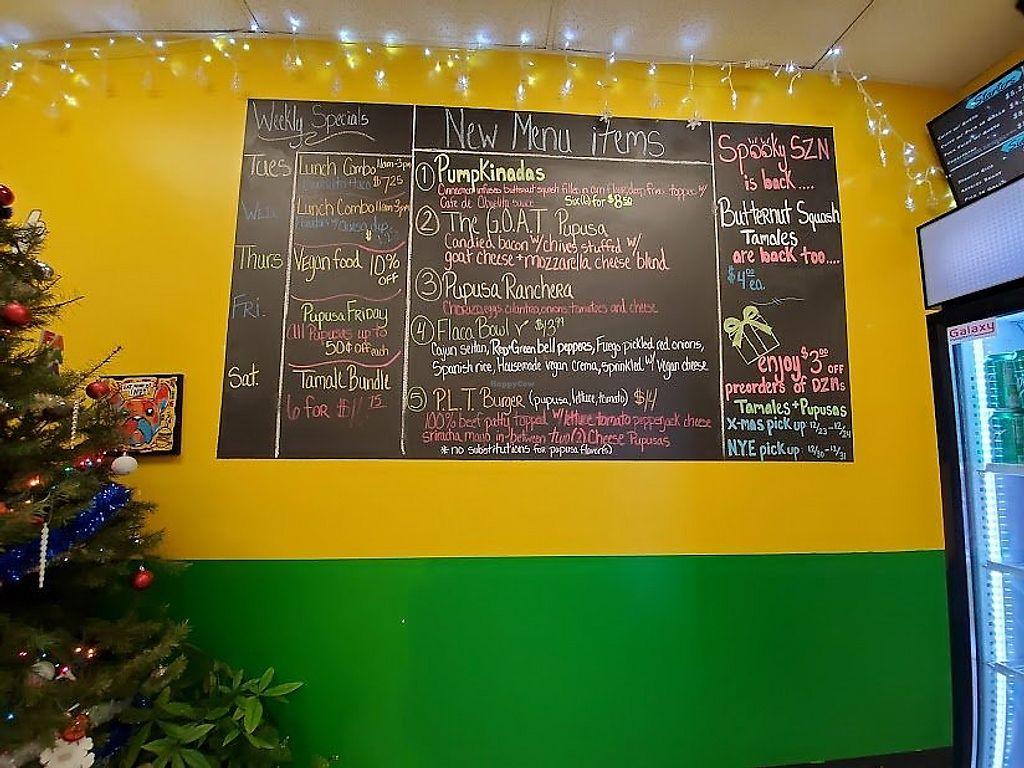 Weekly Specials
Tues
Lunch Combo 11am-3pm
$7.25
Wed
Lunch Combo 11am-3pm
Thurs
Vegan food 10%
OFF
Fri.
Pupusa Friday
All Pupusas up to
50¢ off each
Sat.
Tamale Bundle
6 for $11.75
New Menu items
1 Pumpkinadas
Cinnamon infused butternut squash filled in corn flour, deep fried topped w/
Cafe de Abuelita sauce Six(6) for $8.50
2 The G.O.A.T Pupusa
Candied bacon w/chives stuffed w/
goat cheese + mozzarella cheese blend
3 Pupusa Ranchera
Chorizo, eggs, cilantro, onions, tomatoes and cheese
4 Flaca Bowl V $13.99
Cajun seitan, Red+Green bell peppers, Fuego pickled red onions,
Spanish rice, Housemade vegan crema, sprinkled w/ vegan cheese
5 P.L.T Burger (pupusa, lettuce, tomato) $14
100% beef patty topped w/lettuce tomato pepperjack cheese
sriracha mayo in-between two(2) Cheese Pupusas
*no substitutions for pupusa flavor(s)
Spooky SZN
is back....
Butternut Squash
Tamales
are back too....
$4.00 ea.
enjoy $3.00 OFF
preorders of DZNs
Tamales + Pupusas
X-mas pick up: 12/23-12/24
N.Y.E pick up: 12/30-12/31
HappyCow
Galaxy